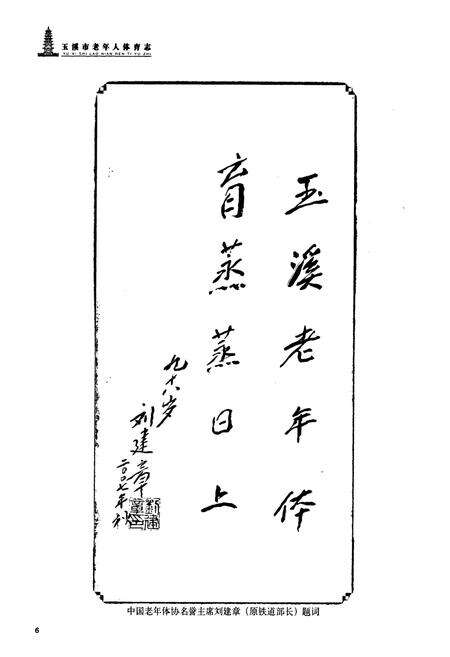 玉溪市老年人体育志
YU XI SHI LAO NIAN REN TI YU ZHI
玉溪老年体
育蒸蒸日上
九十八岁
刘建章
二〇〇七年秋
中国老年体协名誉主席刘建章（原铁道部长）题词
6